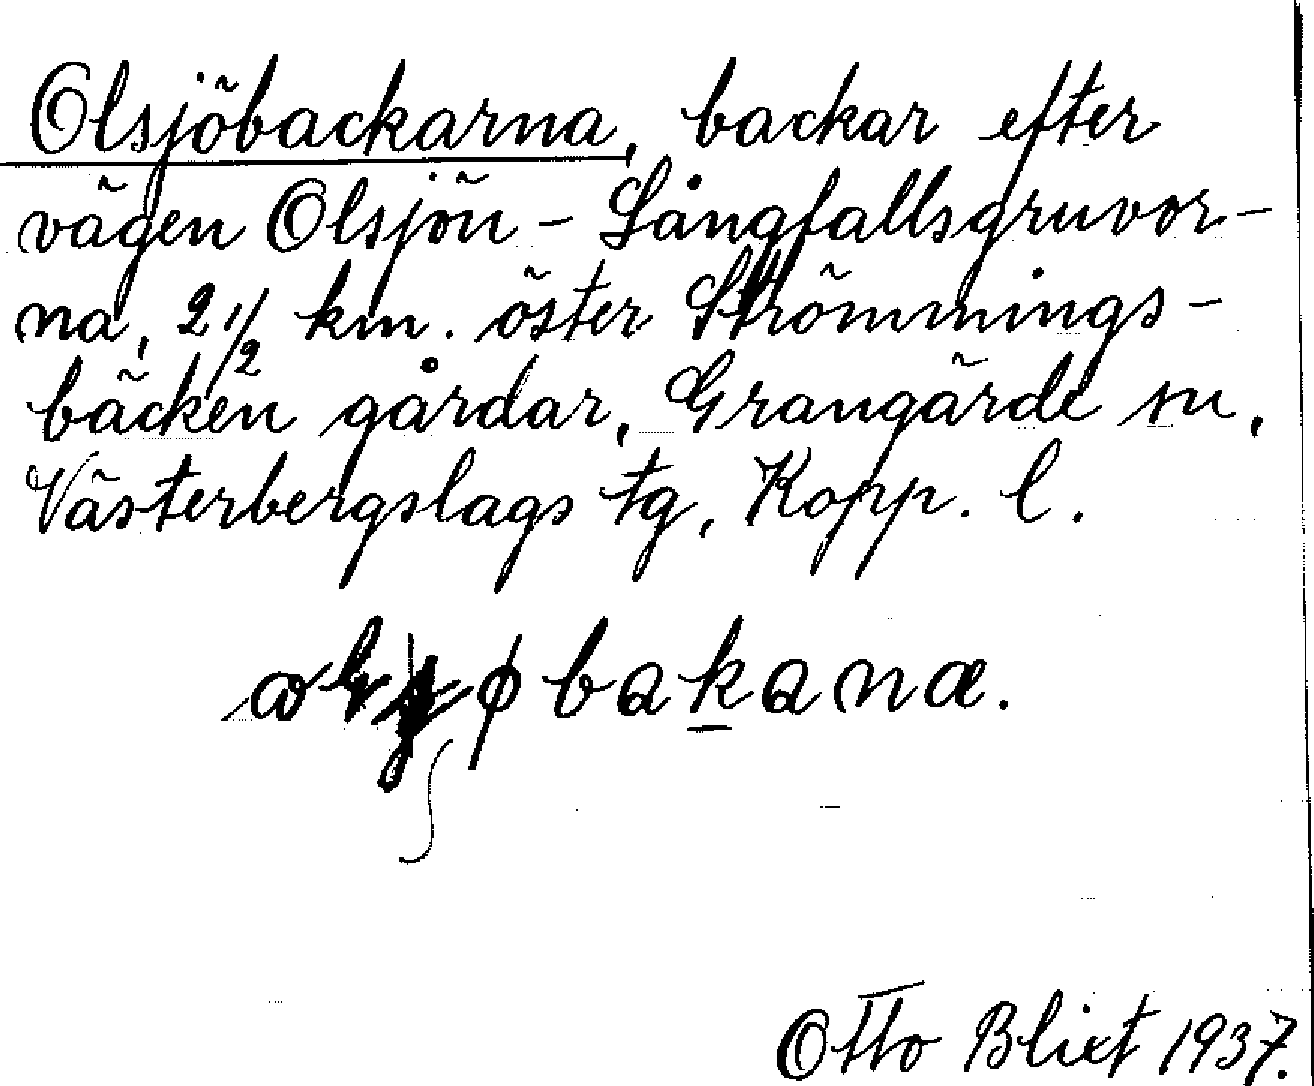 Olsjöbackarna, backar efter
vägen Olsjön – Långfallsgruvor-
na, 2 1/2 km. öster Strömmings-
bäcken gårdar, Grangärde sn,
Västerbergslags tg, Kopp. l.
bakanæ.
Otto Blixt 1937.